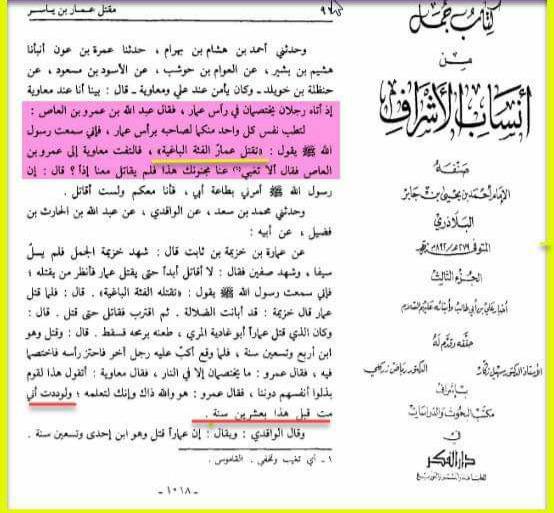 ٩٦
مقتل عمار بن ياسر
وحدثني أحمد بن هشام بن بهرام ، حدثنا عمرة بن عون أنبأنا
هشيم بن بشير ، عن العوام بن حوشب ، عن الأسود بن مسعود ، عن
حنظلة بن خويلد ـ وكان يأمن عند علي ومعاوية ـ قال : بينا أنا عند معاوية
إذ أتاه رجلان يختصمان في رأس عمار ، فقال عبد الله بن عمرو بن العاص :
لتطب نفس كل واحد منكما لصاحبه برأس عمار ، فإني سمعت رسول
الله ﷺ يقول : «تقتل عمارً الفئة الباغية» ، فالتفت معاوية إلى عمرو بن
العاص فقال ألا تغبي(١) عنا مجنونك هذا فلم يقاتل معنا إذاً ؟ قال : إن
رسول الله ﷺ أمرني بطاعة أبي ، فأنا معكم ولست أقاتل .
وحدثني محمد بن سعد ، عن الواقدي ، عن عبد الله بن الحارث بن
فضيل ، عن أبيه :
عن عمارة بن خزيمة بن ثابت قال : شهد خزيمة الجمل فلم يسلّ
سيفا ، وشهد صفين فقال : لا أقاتل أبداً حتى يقتل عمار فأنظر من يقتله ؛
فإني سمعت رسول الله ﷺ يقول : «تقتله الفئة الباغية» . قال : فلما قتل
عمار قال خزيمة : قد أبانت الضلالة . ثم اقترب فقاتل حتى قتل . قال :
وكان الذي قتل عماراً أبو غادية المري ، طعنه برمحه فسقط . قال : وقتل وهو
ابن أربع وتسعين سنة ، فلما وقع أكبّ عليه رجل آخر فاحتز رأسه فاختصما
فيه ، فقال عمرو : ما يختصمان إلا في النار ، فقال معاوية : أتقول هذا لقوم
بذلوا أنفسهم دوننا ، فقال عمرو : هو والله ذاك وإنك لتعلمه ؛ ولوددت أني
مت قبل هذا بعشرين سنة .
وقال الواقدي : ويقال : إن عماراً قتل وهو ابن إحدى وتسعين سنة .
١ ـ أي تغيب وتخفي . القاموس .
ـ ١٠١٨ ـ
كتاب جمل
من
أنساب الأشراف
صنفه
الإمام أحمد بن يحيى بن جابر
البلاذري
المتوفى ٢٧٩ هـ / ٨٩٢ م
الجزء الثالث
أخبار علي بن أبي طالب وأبنائه عليهم السلام
حققه وقدم له
الأستاذ الدكتور سهيل زكار
الدكتور رياض زركلي
بإشراف
مكتب البحوث والدراسات
في
دار الفكر
للطباعة والنشر والتوزيع